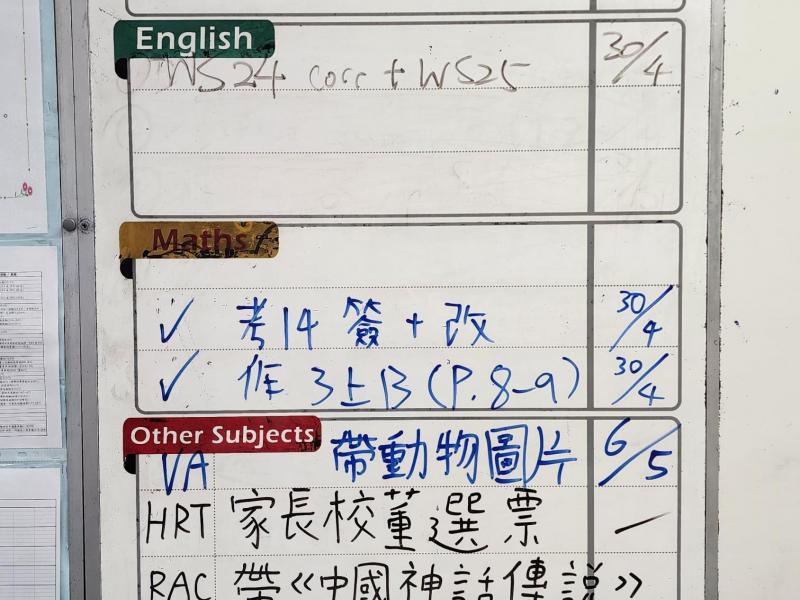 English
WS24 corr + WS25 30/4
Maths
✓ 考14 簽 + 改 30/4
✓ 作 3上B (P.8-9) 30/4
Other Subjects
VA 帶動物圖片 6/5
HRT 家長校董選票 —
RAC 帶《中國神話傳說》